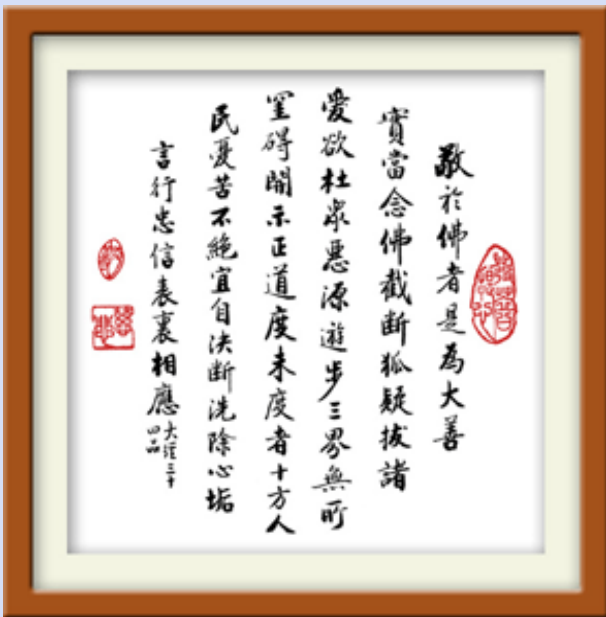 敬於佛者是為大善
實當念佛截斷狐疑拔諸
愛欲杜眾惡源遊步三界無所
罣碍開示正道度未度者十方人
民憂苦不絕宜自決断洗除心垢
言行忠信表裏相應大经三十
四品